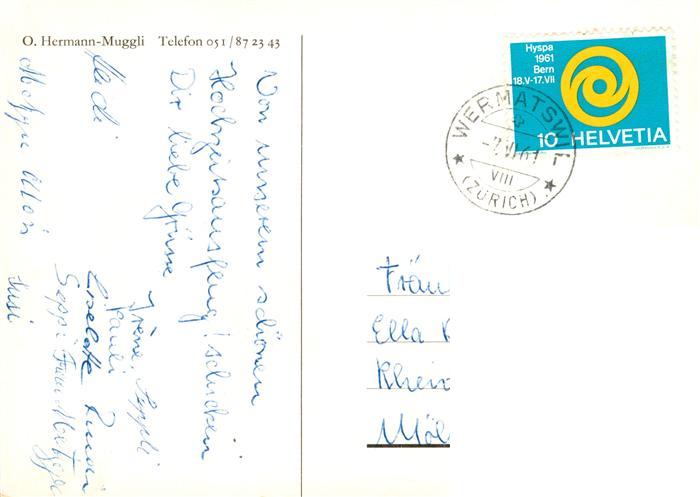 O. Hermann-Muggli Telefon 051/87 23 43
Hyspa
1961
Bern
18.V-17.VII
10 HELVETIA
WERMATSWIL
-7.VI.61
VIII
(ZÜRICH)
Von unserem schönen
Hochzeitsausflug! schicken
Dir liebe Grüsse
Irène, Seppli
Pauli
Liselotte
Seppi Frau
Heidi
Alois
Susi
Fräu
Ella
Rhein
Möl